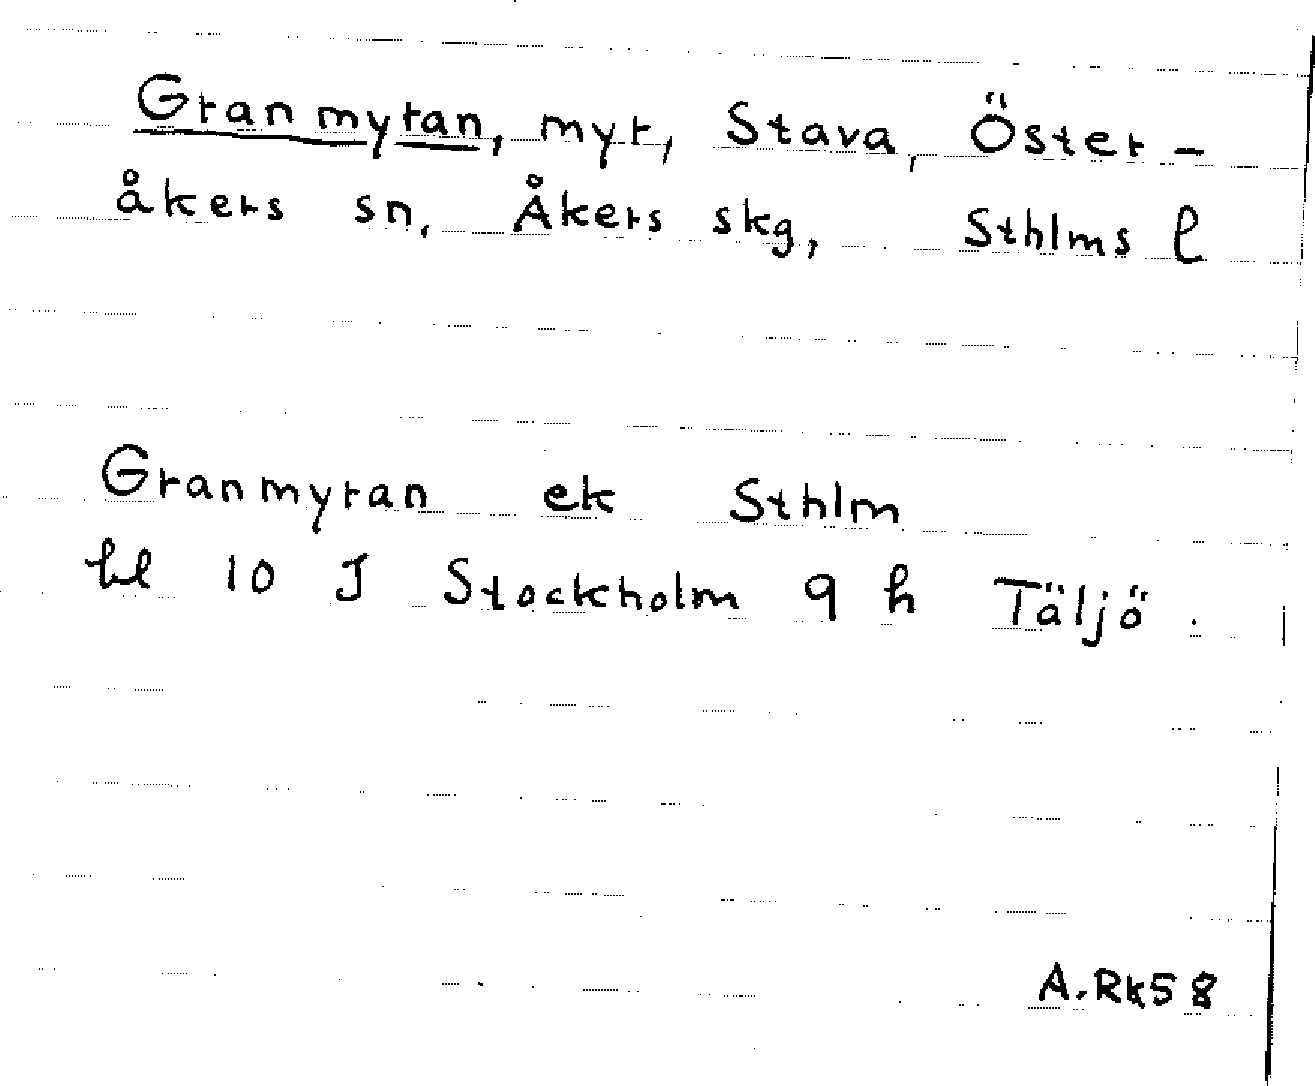 Granmyran, myr, Stava, Öster-
åkers sn. Åkers skg, Sthlms l
Granmyran ek Sthlm
bl 10 J Stockholm 9 h Täljö.
A.Rk58